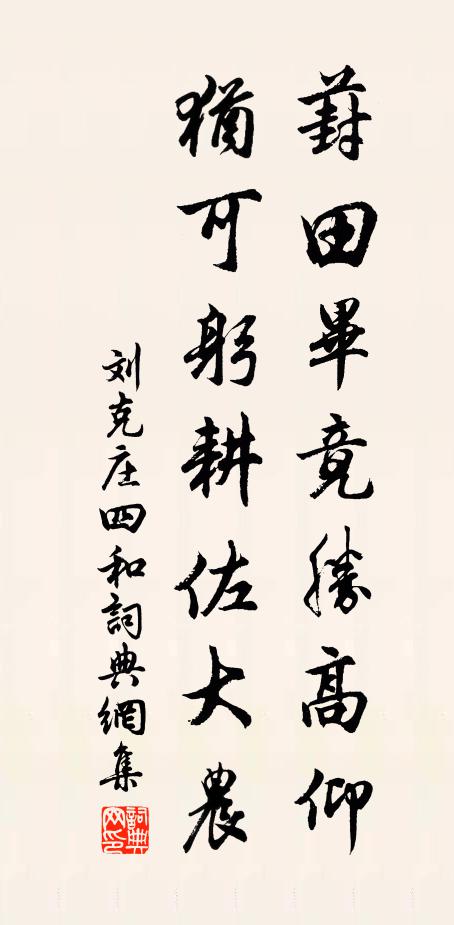 葑田畢竟勝高仰
猶可躬耕佐大農
刘克庄四和詞典網集
詞典网印